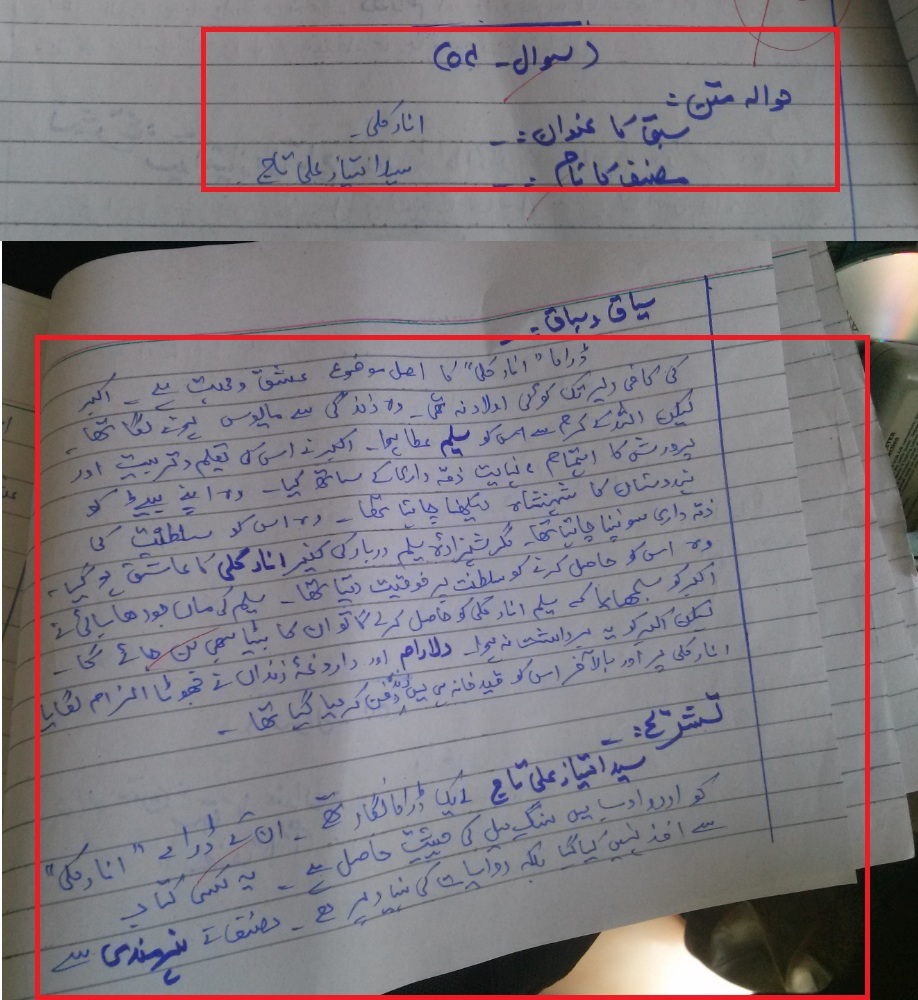 (سوال - 05)
حوالہ متن :
سبق کا عنوان :- انارکلی -
مصنف کا نام :- سید امتیاز علی تاج -
سیاق و سباق :-
ڈراما "انارکلی" کا اصل موضوع عشق و محبت ہے - اکبر
کی کافی دیر تک کوئی اولاد نہ تھی - وہ زندگی سے مایوس ہونے لگا تھا
لیکن اللہ کے کرم سے اس کو سلیم عطا ہوا - اکبر نے اس کی تعلیم و تربیت اور
پرورش کا اہتمام نہایت ذمہ داری کے ساتھ کیا - وہ اپنے بیٹے کو
ہندوستان کا شہنشاہ دیکھنا چاہتا تھا - وہ اس کو سلطنت کی
ذمہ داری سونپنا چاہتا تھا - مگر شہزادہ سلیم دربار کی کنیز انارکلی کا عاشق ہو گیا -
وہ اس کو حاصل کرنے کو سلطنت پر فوقیت دیتا تھا - سلیم کی ماں جودھا بائی نے
اکبر کو سمجھایا کہ سلیم انارکلی کو حاصل کرلے گا تو ان کا بیٹا بھی بن جائے گا -
لیکن اکبر کو یہ برداشت نہ ہوا - دلارام اور داروغۂ زنداں نے جھوٹا الزام لگایا
انارکلی پر اور بالآخر اس کو قید خانہ میں ہی زندہ دفن کر دیا گیا تھا -
تشریح :-
سید امتیاز علی تاج ایک ڈراما نگار تھے - ان کے ڈرامے "انارکلی"
کو اردو ادب میں سنگِ میل کی حیثیت حاصل ہے - یہ کسی کتاب
سے اخذ نہیں کیا گیا بلکہ روایات کی بنیاد پر ہے - مصنف نے ہنرمندی سے